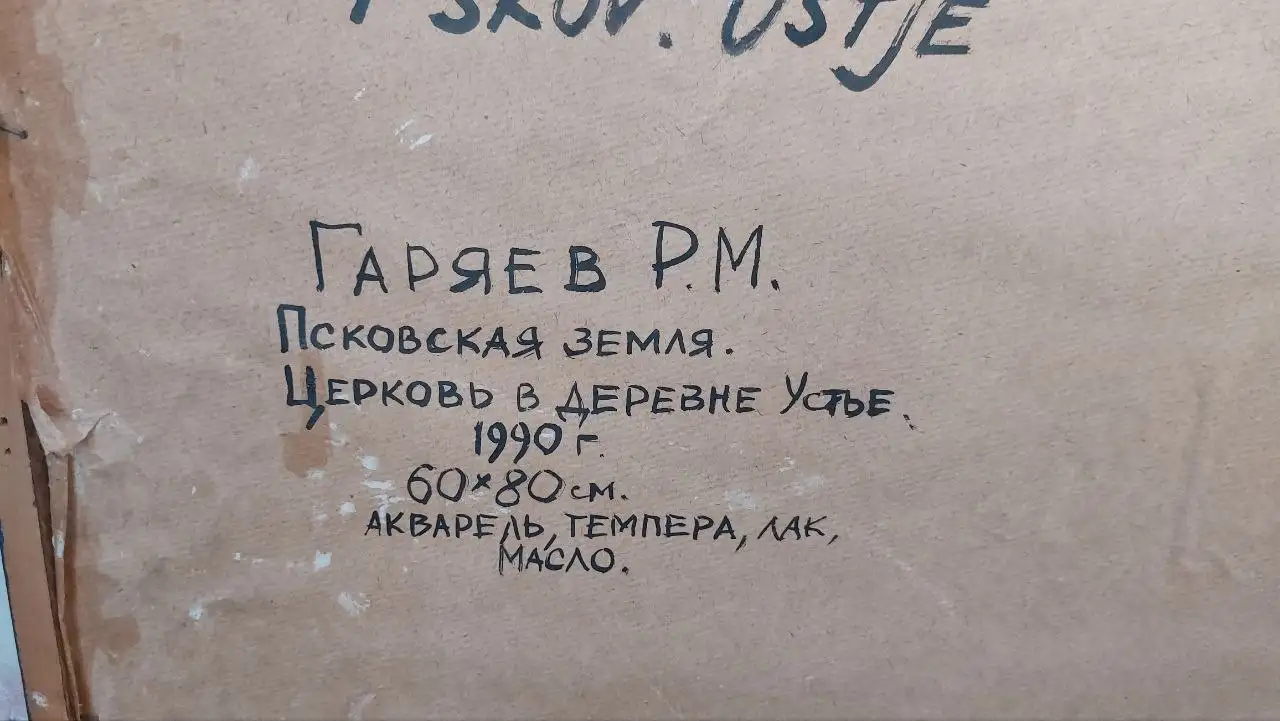 PSKOV. USTJE
Гаряев Р.М.
Псковская земля.
Церковь в деревне Устье.
1990 г.
60×80 см.
акварель, темпера, лак,
масло.